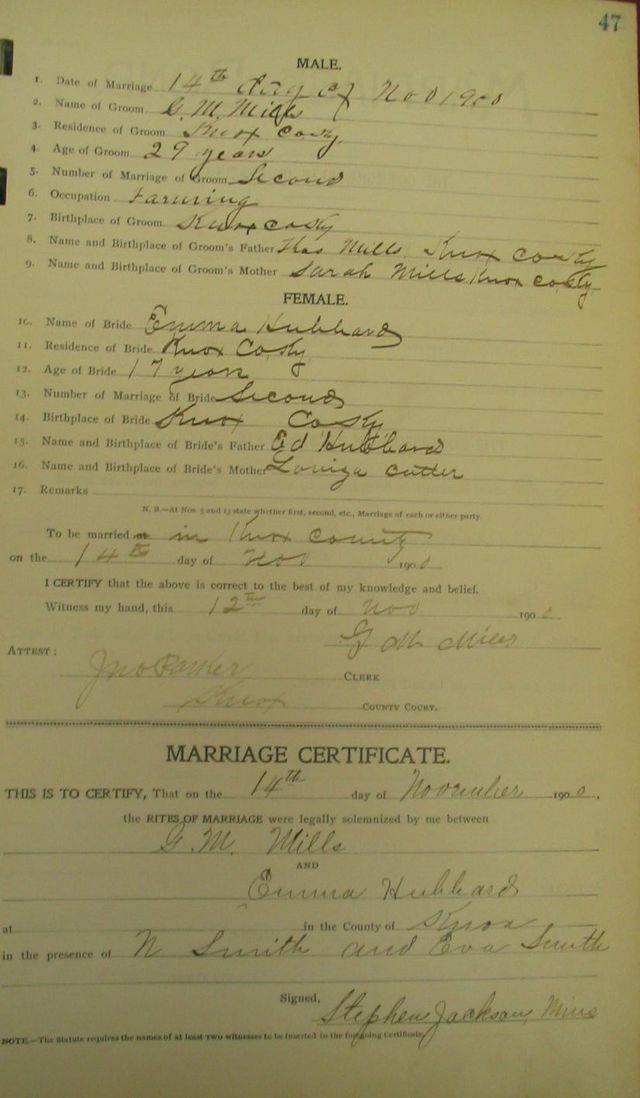 47
MALE.
1. Date of Marriage 14th day of Nov 1900
2. Name of Groom G. M. Mills
3. Residence of Groom Knox Co Ky
4. Age of Groom 29 years
5. Number of Marriage of Groom Second
6. Occupation Farming
7. Birthplace of Groom Knox Co Ky
8. Name and Birthplace of Groom's Father Mills Knox Co Ky
9. Name and Birthplace of Groom's Mother Sarah Mills Knox Co Ky
FEMALE.
10. Name of Bride Emma Hubbard
11. Residence of Bride Knox Co. Ky
12. Age of Bride 17 years
13. Number of Marriage of Bride Second
14. Birthplace of Bride Knox Co Ky
15. Name and Birthplace of Bride's Father Ed Hubbard
16. Name and Birthplace of Bride's Mother Louiza Cutter
17. Remarks
N. B.—At Nos. 5 and 13 state whether first, second, etc., Marriage of each or either party.
To be married at in Knox County
on the 14th day of Nov 1900
I CERTIFY that the above is correct to the best of my knowledge and belief.
Witness my hand, this 12th day of Nov 1900
G M Mills
ATTEST:
Jno Parker CLERK
Knox COUNTY COURT.
MARRIAGE CERTIFICATE.
THIS IS TO CERTIFY, That on the 14th day of November 1900.
the RITES OF MARRIAGE were legally solemnized by me between
G. M. Mills
AND
Emma Hubbard
at in the County of Knox
in the presence of N Smith and Eva Smith
Signed,
Stephen Jackson, Mins
NOTE.—The Statute requires the names of at least two witnesses to be inserted in the foregoing Certificate.